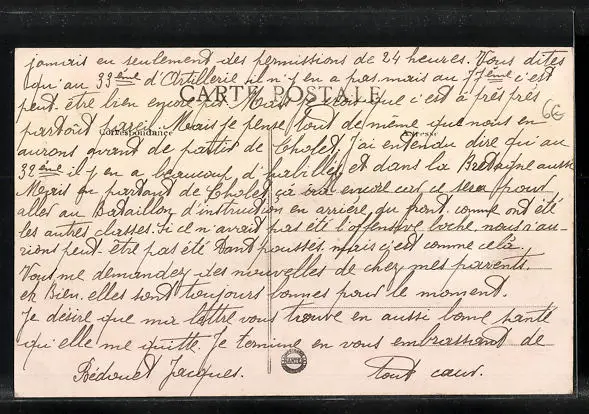 jamais eu seulement des permissions de 24 heures. Vous dites
qu'au 33ème d'Artillerie il n'y en a pas. mais au 77ème c'est
CARTE POSTALE
peut-être bien encore Mais je crois que c'est à près près
partout pareil. Mais je pense tout de même que nous en
Correspondance Adresse
aurons avant de partir de Cholet. J'ai entendu dire qu'au
32ème il y en a beaucoup d'habillés et dans la Bretagne aussi
Mais en partant de Cholet çà ira encore car ce sera pour
aller au Bataillon d'instruction en arrière du front. comme ont été
les autres classes. Si il n'avait pas été l'offensive boche nous n'au-
rions peut-être pas été tant poussés, mais c'est comme celà.
Vous me demandez des nouvelles de chez mes parents.
eh Bien. elles sont toujours bonnes pour le moment.
Je désire que ma lettre vous trouve en aussi bonne santé
qu'elle me quitte. Je termine en vous embrassant de
Bédouet Jacques. tout cœur.